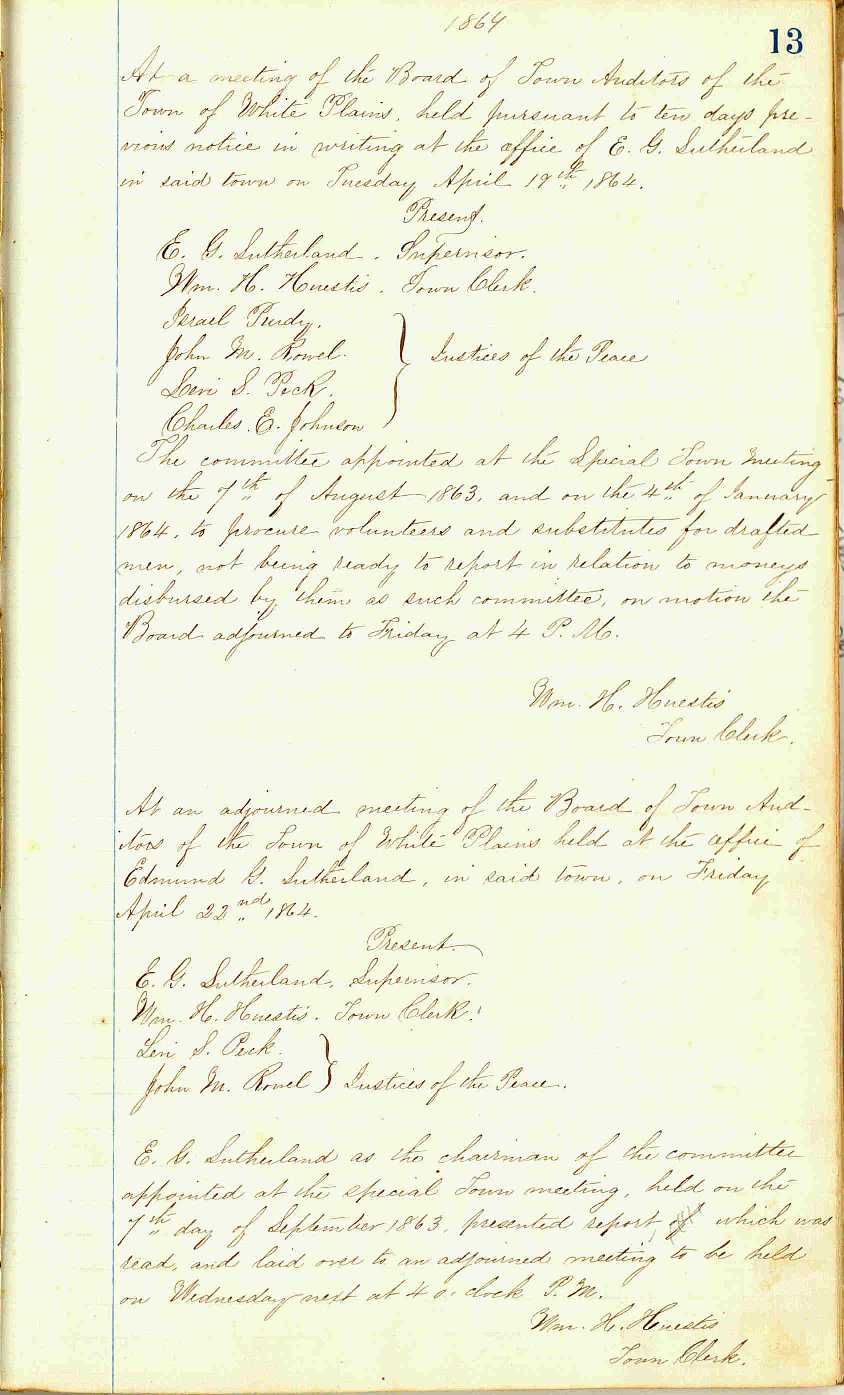 1864
13
At a meeting of the Board of Town Auditors of the
Town of White Plains, held pursuant to ten days pre-
vious notice in writing at the office of E. G. Sutherland
in said town on Tuesday April 19th 1864.
Present.
E. G. Sutherland. Supervisor.
Wm. H. Huestis. Town Clerk.
Israel Purdy.
John M. Rowel.
Justices of the Peace
Levi S. Peck.
Charles. E. Johnson
The committee appointed at the Special Town Meeting
on the 7th of August 1863, and on the 4th of January
1864, to procure volunteers and substitutes for drafted
men, not being ready to report in relation to moneys
disbursed by them as such committee, on motion the
Board adjourned to Friday at 4 P. M.
Wm. H. Huestis
Town Clerk.
At an adjourned meeting of the Board of Town Aud-
itors of the Town of White Plains held at the office of
Edmund G. Sutherland, in said town, on Friday
April 22nd 1864.
Present.
E. G. Sutherland, Supervisor.
Wm. H. Huestis. Town Clerk.
Levi S. Peck.
John M. Rowel Justices of the Peace.
E. G. Sutherland as the chairman of the committee
appointed at the special Town meeting, held on the
7th day of September 1863, presented report, which was
read, and laid over to an adjourned meeting to be held
on Wednesday next at 4 o.clock P. M.
Wm. H. Huestis
Town Clerk.